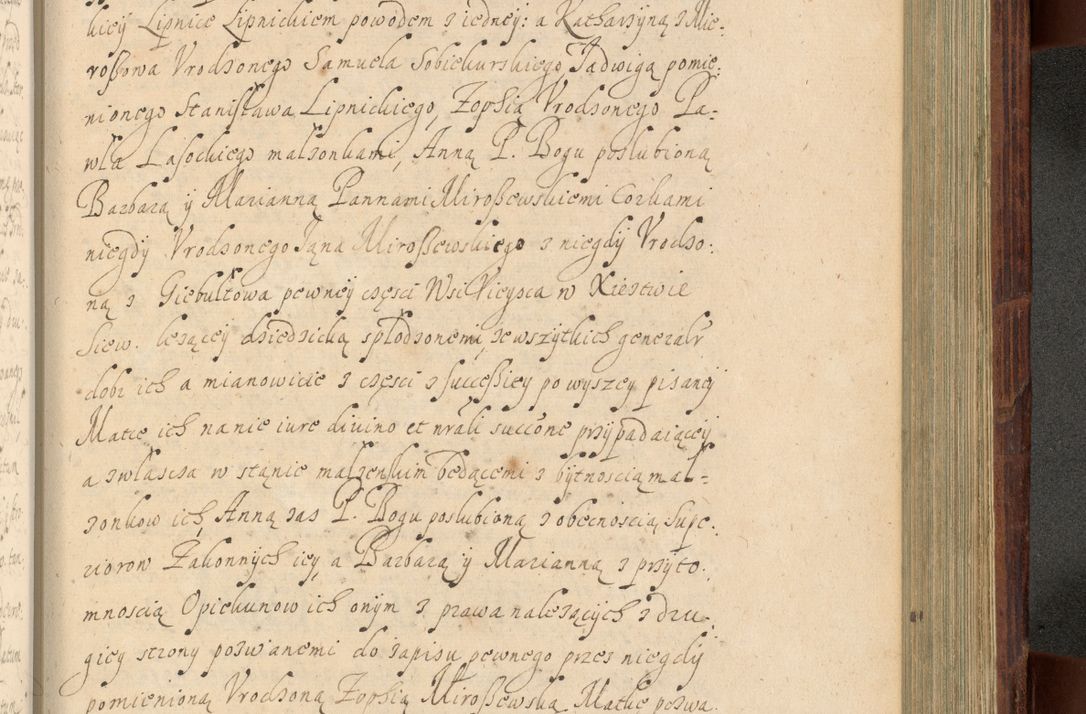 kiey Lipnice Lipnickiem powodem z iedney: a Katharzyną z Mie:
roszowa Vrodzonego Samuela Sobiekurskiego, Jadwigą pomie:
nionego Stanisława Lipnickiego, Zophią Vrodzonego Pa-
wła Lasockiego małzonkami, Anną P. Bogu poslubioną
Barbarą y Marianną Pannami Miroszewskiemi Corkami
niegdy Vrodzonego Jana Miroszewskiego z niegdy Vrodzo:
ną z Giebułtowa pewney częsci Wsi w Xięstwie
Siew. lezącey dziedziczką spłodzonemi, ze wszytkich generalr
dobr ich a mianowicie z częsci z successiey po wyszey pisaney
Matce ich na nie iure divino et nrali succōne przypadaiącey
a zwłascza w stanie małzenskim będącemi z bytnoscią mał-
zonkow ich, Anną zas P. Bogu poslubioną z obecnoscią Supe:
riorow Zakonnych iey, a Barbarą y Marianną z przyto:
mnoscią Opiekunow ich onym z prawa nalezących z dru:
giey strony pozwanemi do zapisu pewnego przez niegdy
pomienioną Vrodzoną Zophią Miroszewską Matkę pozwa: